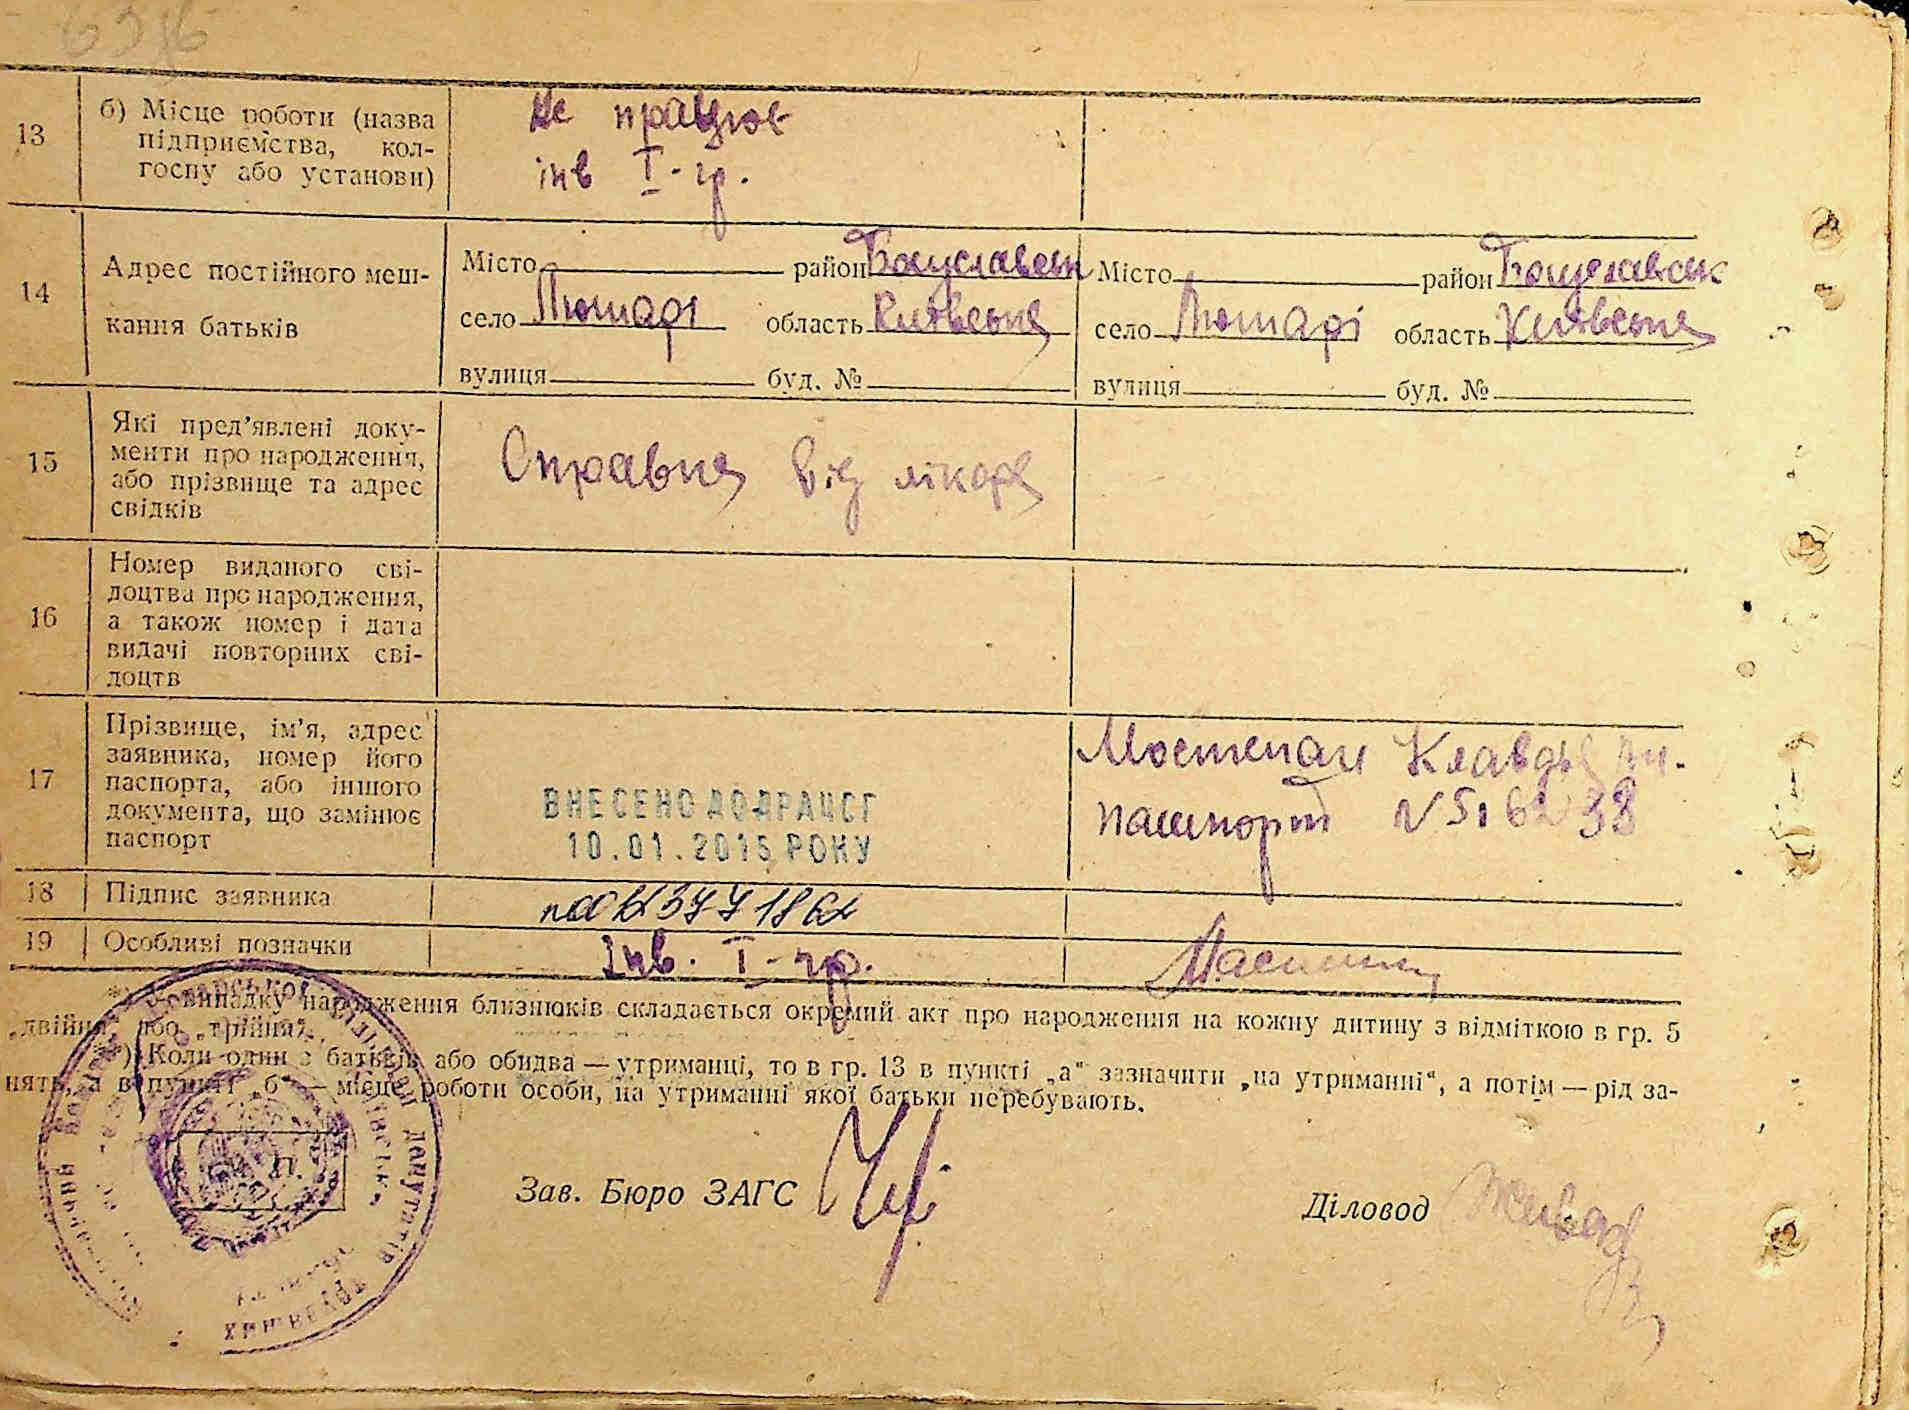 13
б) Місце роботи (назва
підприємства, кол-
госпу або установи)
Не працює
інв I-гр.
14
Адрес постійного меш-
кання батьків
Місто район Богуславськ
село Тептарі область Київська
вулиця буд. №
Місто район Богуславськ
село область Київська
вулиця буд. №
15
Які пред'явлені доку-
менти про народження,
або прізвище та адрес
свідків
Справка від лікаря
16
Номер виданого сві-
доцтва про народження,
а також номер і дата
видачі повторних сві-
доцтв
17
Прізвище, ім'я, адрес
заявника, номер його
паспорта, або іншого
документа, що замінює
паспорт
ВНЕСЕНО ДО ДРАЦСГ
10.01.2015 РОКУ
Мостепан Клавдія
пашпорт N 516238
18
Підпис заявника
19
Особливі позначки
Інв. I-гр.
*) У випадку народження близнюків складається окремий акт про народження на кожну дитину з відміткою в гр. 5
„двійня" або „трійня".
**) Коли один з батьків або обидва — утриманці, то в гр. 13 в пункті „а" зазначити „на утриманні", а потім — рід за-
нять, а в пункті „б" — місце роботи особи, на утриманні якої батьки перебувають.
М. П.
Зав. Бюро ЗАГС
Діловод